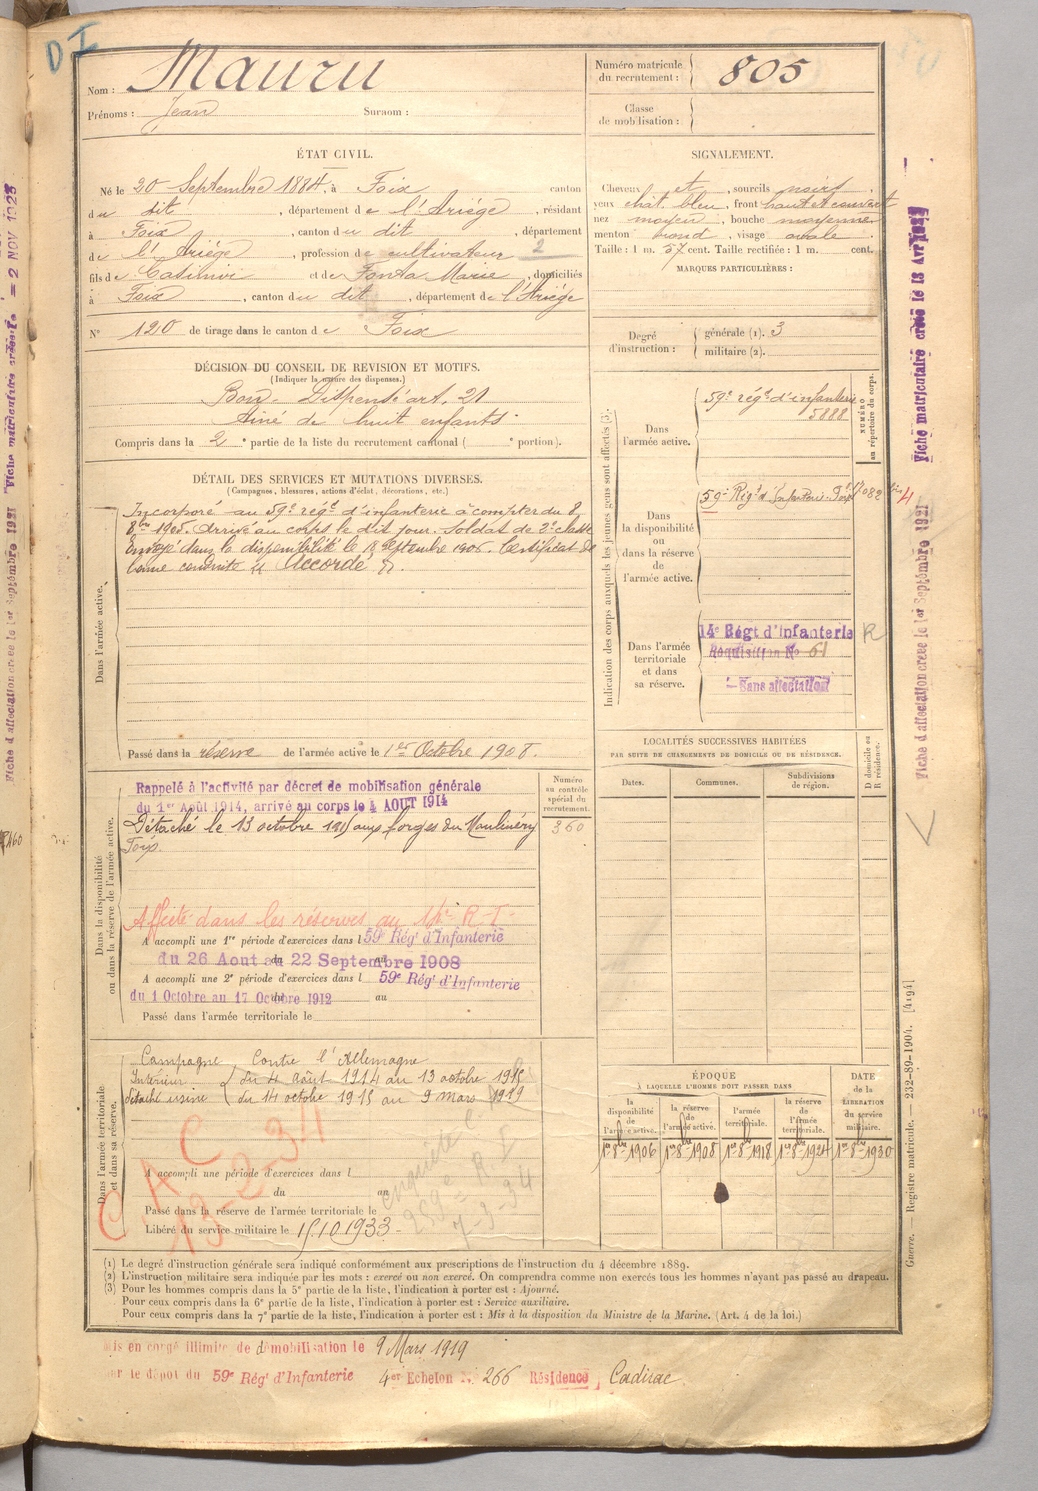 Nom : Mauru
Prénoms : Jean Surnom :
Numéro matricule du recrutement : 805
Classe de mobilisation :
ÉTAT CIVIL.
Né le 20 Septembre 1884, à Foix canton
du dit, département de l'Ariége, résidant
à Foix, canton du dit, département
de l'Ariége, profession de cultivateur 2
fils de Casimir et de Fonta Marie, domiciliés
à Foix, canton du dit, département de l'Ariége
N° 120 de tirage dans le canton de Foix
SIGNALEMENT.
Cheveux et, sourcils noirs,
yeux chât. bleu, front haut et couvert
nez moyen, bouche moyenne
menton rond, visage ovale.
Taille : 1 m. 57 cent. Taille rectifiée : 1 m. cent.
MARQUES PARTICULIÈRES :
Degré d'instruction : générale (1). 3
militaire (2).
DÉCISION DU CONSEIL DE REVISION ET MOTIFS.
(Indiquer la nature des dispenses.)
Bon. Dispensé art. 21
Aîné de huit enfants
Compris dans la 2e partie de la liste du recrutement cantonal ( e portion).
DÉTAIL DES SERVICES ET MUTATIONS DIVERSES.
(Campagnes, blessures, actions d'éclat, décorations, etc.)
Dans l'armée active.
Incorporé au 59e régt d'infanterie à compter du 8
8bre 1905. Arrivé au corps le dit jour. Soldat de 2e classe
Envoyé dans la disponibilité le 18 septembre 1906. Certificat de
bonne conduite "Accordé".
Passé dans la réserve de l'armée active le 1er Octobre 1908.
Indication des corps auxquels les jeunes gens sont affectés (3).
NUMÉRO au répertoire du corps.
Dans l'armée active.
59e régt d'infanterie
5888
Dans la disponibilité ou dans la réserve de l'armée active.
59e Régt d'Infanterie Foix
Dans l'armée territoriale et dans sa réserve.
14e Régt d'Infanterie R
Réquisition No 61
— Sans affectation
LOCALITÉS SUCCESSIVES HABITÉES
PAR SUITE DE CHANGEMENTS DE DOMICILE OU DE RÉSIDENCE.
Dates. Communes. Subdivisions de région.
D domicile ou R résidence.
Dans la disponibilité ou dans la réserve de l'armée active.
Numéro au contrôle spécial du recrutement.
360
Rappelé à l'activité par décret de mobilisation générale
du 1er Août 1914, arrivé au corps le 4 AOUT 1914
Détaché le 13 octobre 1915 aux forges du
Foix.
Affecté dans les réserves au 14e R.I.
A accompli une 1re période d'exercices dans l 59e Régt d'Infanterie
du 26 Aout au 22 Septembre 1908
A accompli une 2e période d'exercices dans l 59e Régt d'Infanterie
du 1 Octobre au 17 Octobre 1912 au
Passé dans l'armée territoriale le
Dans l'armée territoriale et dans sa réserve.
Campagne Contre l'Allemagne
Intérieur du 4 août 1914 au 13 octobre 1915
détaché usine du 14 octobre 1915 au 9 mars 1919
C. A C
13-2-34
enquête C.
259e R.I
7-3-34
A accompli une période d'exercices dans l
du au
Passé dans la réserve de l'armée territoriale le
Libéré du service militaire le 15.10.1933 -
ÉPOQUE
À LAQUELLE L'HOMME DOIT PASSER DANS
la disponibilité de l'armée active.
la réserve de l'armée active.
l'armée territoriale.
la réserve de l'armée territoriale.
DATE de la LIBÉRATION du service militaire.
1er 8bre 1906 1er 8bre 1908 1er 8bre 1918 1er 8bre 1924 1er 8bre 1930
(1) Le degré d'instruction générale sera indiqué conformément aux prescriptions de l'instruction du 4 décembre 1889.
(2) L'instruction militaire sera indiquée par les mots : exercé ou non exercé. On comprendra comme non exercés tous les hommes n'ayant pas passé au drapeau.
(3) Pour les hommes compris dans la 5e partie de la liste, l'indication à porter est : Ajourné.
Pour ceux compris dans la 6e partie de la liste, l'indication à porter est : Service auxiliaire.
Pour ceux compris dans la 7e partie de la liste, l'indication à porter est : Mis à la disposition du Ministre de la Marine. (Art. 4 de la loi.)
Mis en congé illimité de démobilisation le 9 Mars 1919
par le dépôt du 59e Régt d'Infanterie 4er Echelon N° 266 Résidence, Cadirac
Guerre. — Registre matricule. — 232-89-1904. [4194]
Fiche d'affectation créée le 1er Septembre 1921
Fiche matriculaire créée le 13 Avr
Fiche d'affectation créée le 1er Septembre 1921
Fiche matriculaire créée le = 2 NOV 1923
DI